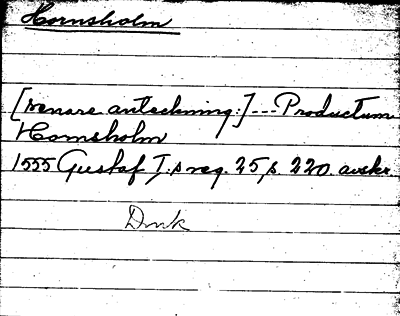 Hornsholm
[senare anteckning:]---Productum
Hornsholm
1555 Gustaf I:s reg. 25, s. 220. avskr.
Dmk